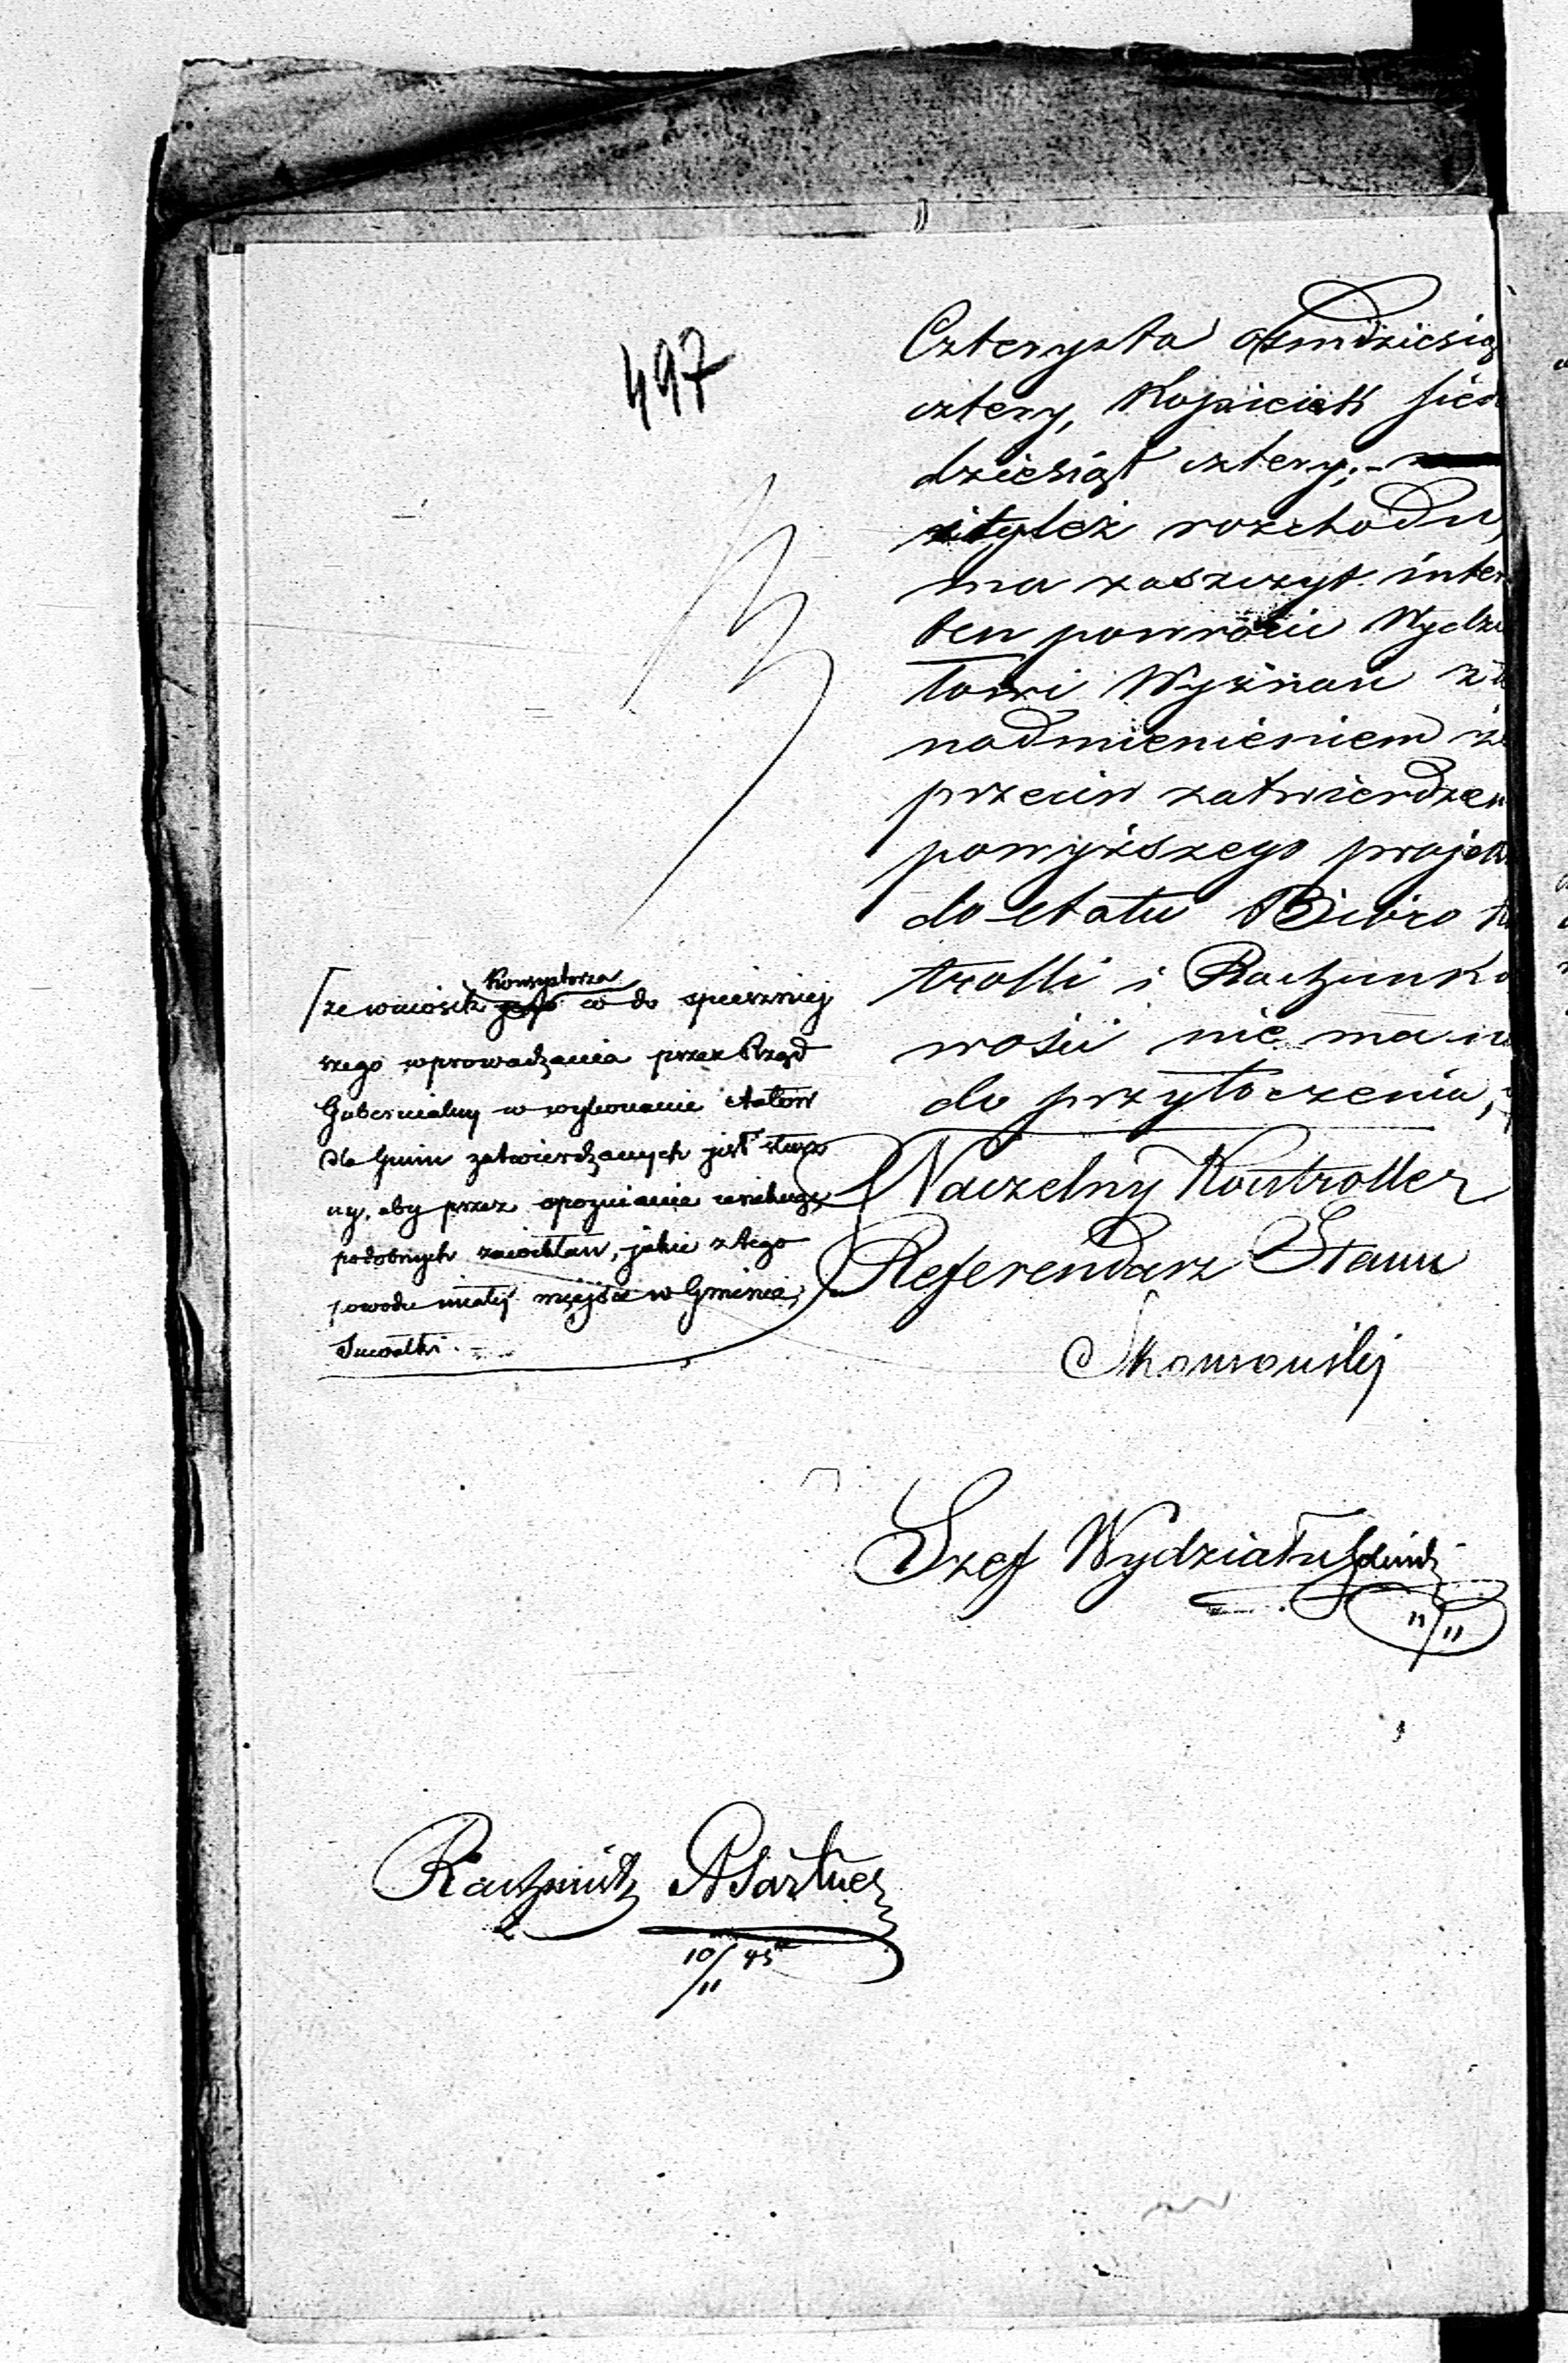 497
Czterysta ośmdziesiąt
cztery, Kopieiek sied
dziesiąt cztery;-
i tyleż rozchodu,
ma zaszczyt inter
ten powrócić Wydzia
łowi Wyznań z
nadmienieniem że
przeciw zatwierdzen
powyższego projekt
do etatu Biuro Ko
trolli i Rachunko
wości nic ma
do przytoczenia,
Konsystorza
że wniosek co do spieszniej
szego wprowadzania przez Rząd
Gubernialny w wykonanie etatów
dla Gmin zatwierdzanych jest słusz
ny, aby przez opóźnianie uniknąć
podobnych zawikłań, jakie z tego
powodu miały miejsce w Gminie
Suwałki.
Naczelny Kontroller
Referendarz Stanu
Skowroński
Szef Wydziału
11/11
Rachmistrz
10/11 45